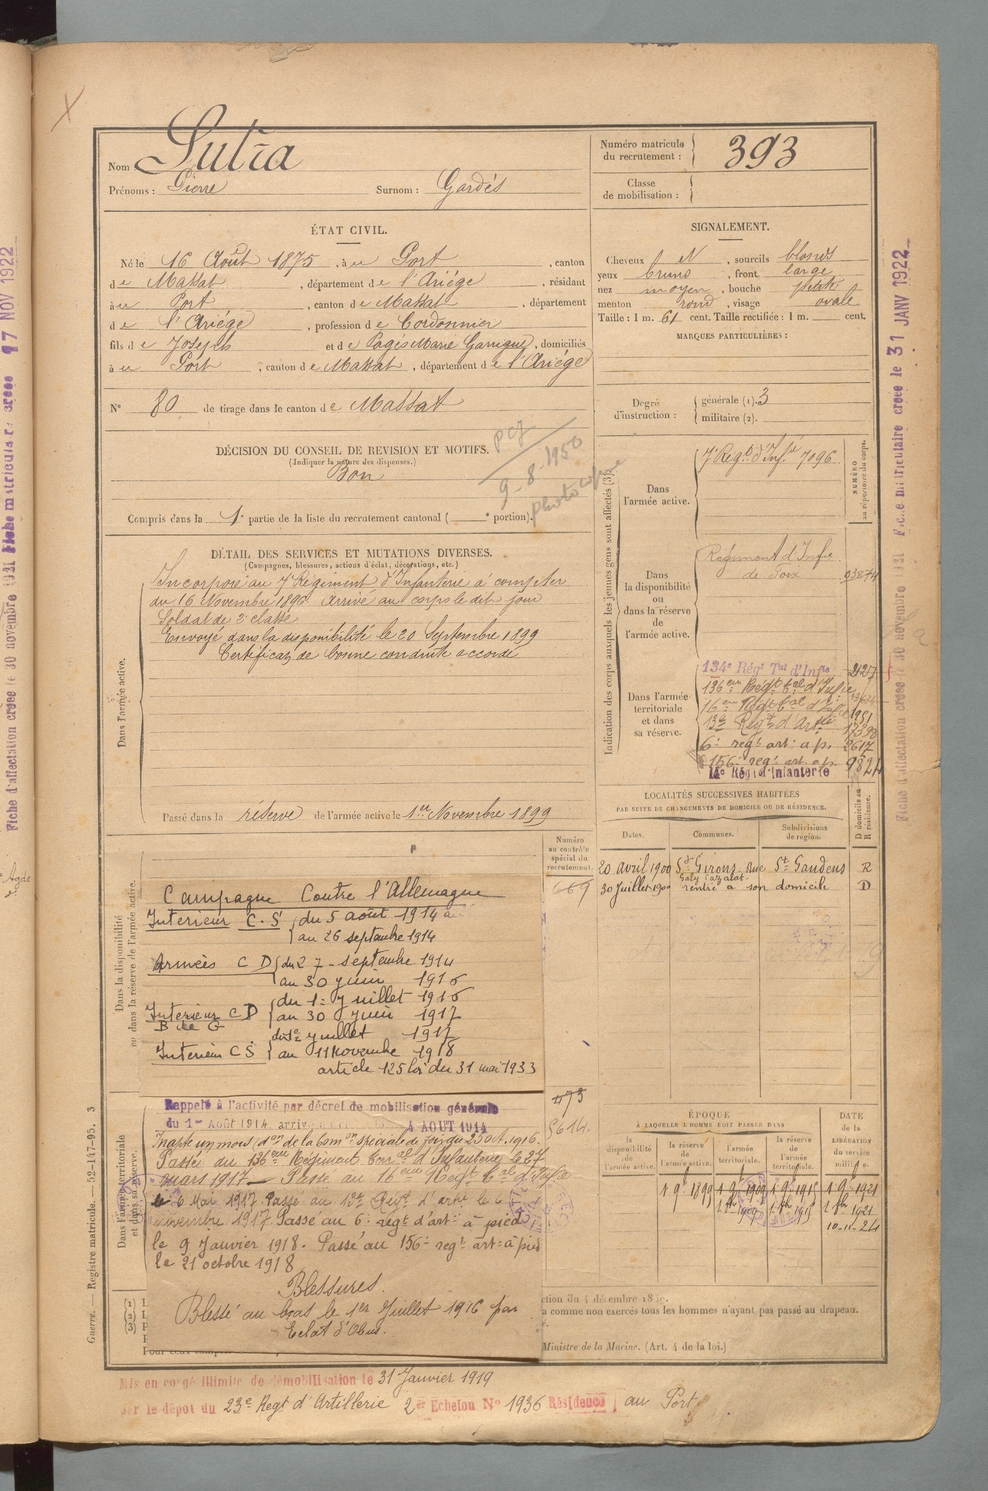 Nom Sutra
Prénoms : Pierre Surnom : Gardés
Numéro matricule du recrutement : 393
Classe de mobilisation :
ÉTAT CIVIL.
Né le 16 Août 1875, à u Port, canton
de Massat, département de l'Ariége, résidant
à u Port, canton de Massat, département
de l'Ariége, profession de Cordonnier
fils de Joseph et de Pagès Marie Garrigue, domiciliés
à u Port, canton de Massat, département de l'Ariége
N° 80 de tirage dans le canton de Massat
SIGNALEMENT.
Cheveux N, sourcils blonds
yeux bruns, front large
nez moyen, bouche petite
menton rond, visage ovale
Taille : 1 m. 61 cent. Taille rectifiée : 1 m. cent.
MARQUES PARTICULIÈRES :
Degré d'instruction : générale (1). 3
militaire (2).
DÉCISION DU CONSEIL DE REVISION ET MOTIFS.
(Indiquer la nature des dispenses.)
Bon
9-8-1950
photocopie
Compris dans la 1e partie de la liste du recrutement cantonal ( e portion).
DÉTAIL DES SERVICES ET MUTATIONS DIVERSES.
(Campagnes, blessures, actions d'éclat, décorations, etc.)
Dans l'armée active.
Incorporé au 7e Régiment d'Infanterie à compter
du 16 Novembre 1896. Arrivé au corps le dit jour
Soldat de 2e classe
Envoyé dans la disponibilité le 20 Septembre 1899
Certificat de bonne conduite accordé
Passé dans la réserve de l'armée active le 1er Novembre 1899
Indication des corps auxquels les jeunes gens sont affectés (3).
NUMÉRO au répertoire du corps.
Dans l'armée active.
7e Régt d'Infie 7096
Dans la disponibilité ou dans la réserve de l'armée active.
Régiment d'Infie de Foix 03874
Dans l'armée territoriale et dans sa réserve.
134e Régt Tal d'Infie 2127
136eme Régt tal d'Infie
16eme Régt tal d'Infie 1951
13e Régt d'Artie
6e regt art. à p. 2617
156e regt art. à p. 9824
14e Rég. d'Infanterie
LOCALITÉS SUCCESSIVES HABITÉES
PAR SUITE DE CHANGEMENTS DE DOMICILE OU DE RÉSIDENCE.
Dates. Communes. Subdivisions de région. D domicile ou R résidence.
20 avril 1900 St Girons. Rue Galy Cazalat. St Gaudens R
30 Juillet 1900 rentré à son domicile D
Numéro au contrôle spécial du recrutement.
669
Dans la disponibilité ou dans la réserve de l'armée active.
Campagne Contre l'Allemagne
Intérieur C.S du 5 août 1914
au 26 septembre 1914
Armées C D du 27 septembre 1914
au 30 juin 1916
Intérieur CD du 1er juillet 1916
B de G au 30 juin 1917
du 1er juillet 1917
Intérieur CS au 11 Novembre 1918
article 125 loi du 31 mai 1933
473
5614.
Dans l'armée territoriale et dans sa réserve.
Rappelé à l'activité par décret de mobilisation générale
du 1er Août 1914 arriv 4 AOUT 1914
Inapte un mois, don de la Comon spéciale de Foix du 25 oct. 1916.
Passé au 136eme Régiment terral d'Infanterie le 27
mars 1917. Passé au 16eme Regt tal d'Infie
le 6 Mai 1917. Passé au 13e Regt d'artie le 6
novembre 1917 Passé au 6e regt d'artie à pied
le 9 Janvier 1918. Passé au 156e regt art. à pied
le 21 octobre 1918
Blessures.
Blessé au bras le 1er Juillet 1916 par
Eclat d'Obus.
ÉPOQUE
À LAQUELLE L'HOMME DOIT PASSER DANS
la disponibilité de l'armée active. la réserve de l'armée active. l'armée territoriale. la réserve de l'armée territoriale. DATE de la LIBÉRATION du service militaire.
1 9e 1899 1 9e 1909 1 9e 1915 1 9e 1921
10-11-24
ction du 4 décembre 18
a comme non exercés tous les hommes n'ayant pas passé au drapeau.
Ministre de la Marine. (Art. 4 de la loi.)
Mis en congé illimité de démobilisation le 31 Janvier 1919
par le dépôt du 23e Regt d'Artillerie 2e Echelon No 1936 Résidence au Port
Guerre. — Registre matricule. — 52-147-95. 3
Fiche d'affectation créée le 30 novembre 1921 Fiche matriculaire créée le 17 NOV 1922
Fiche d'affectation créée le 30 novembre 1921 Fiche matriculaire créée le 31 JANV 1922